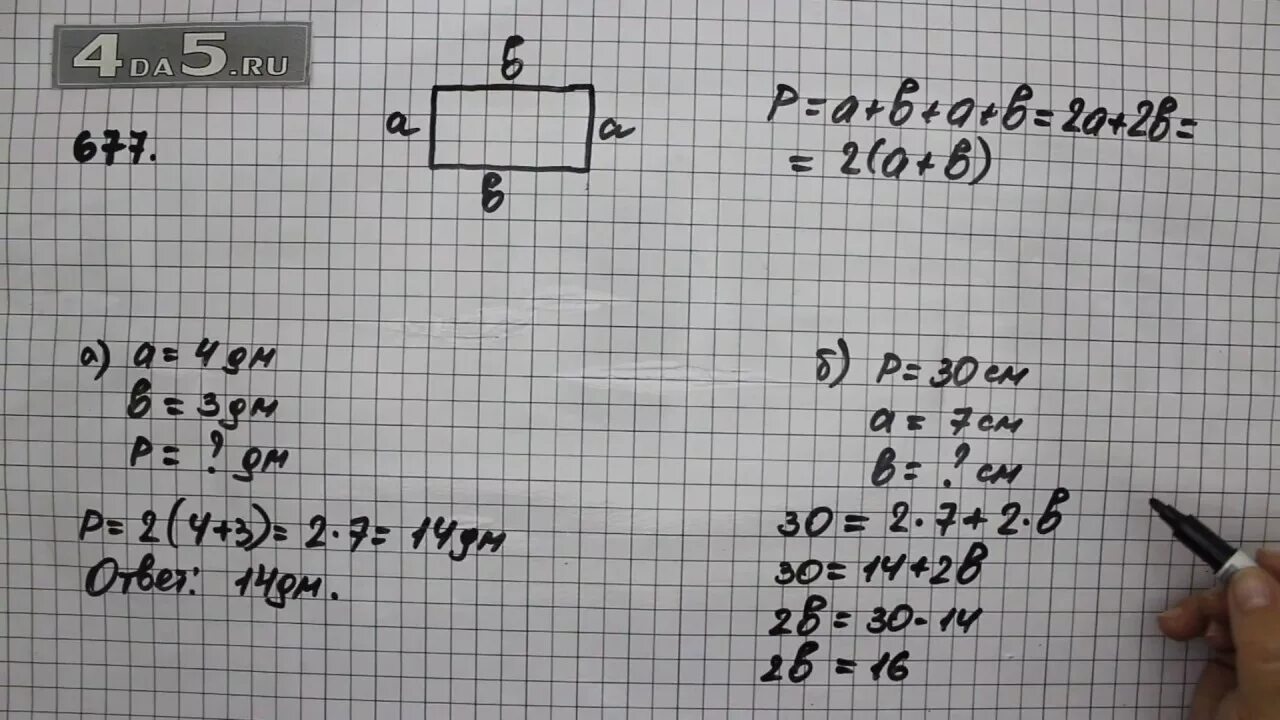 4DA5.RU
677.
в
a
a
в
P = a + в + a + в = 2a + 2в =
= 2(a + в)
а) a = 4 дм
в = 3 дм
P = ? дм
P = 2(4+3) = 2·7 = 14 дм
Ответ: 14 дм.
б) P = 30 см
a = 7 см
в = ? см
30 = 2·7 + 2·в
30 = 14 + 2в
2в = 30 - 14
2в = 16